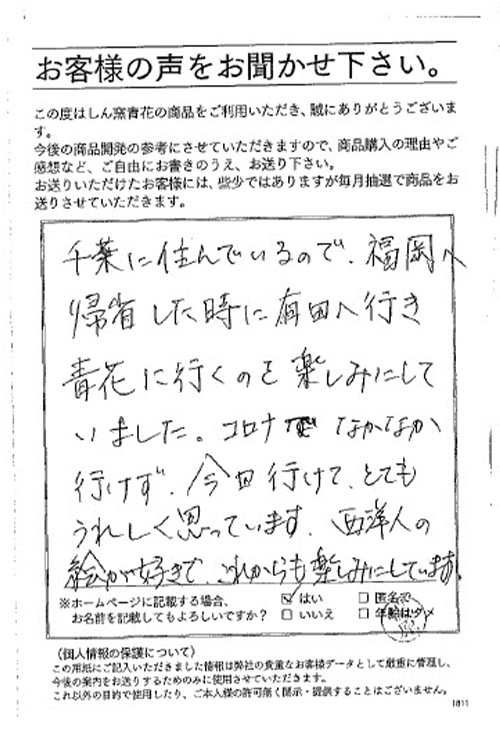 お客様の声をお聞かせ下さい。
この度はしん窯青花の商品をご利用いただき、誠にありがとうございま
す。
今後の商品開発の参考にさせていただきますので、商品購入の理由やご
感想など、ご自由にお書きのうえ、お送り下さい。
お送りいただけたお客様には、些少ではありますが毎月抽選で商品をお
送りさせていただきます。
千葉に住んでいるので、福岡へ
帰省した時に有田へ行き
青花に行くのを楽しみにして
いました。コロナでなかなか
行けず、今回行けて、とても
うれしく思っています。西洋人の
絵が好きで、これからも楽しみにしています。
※ホームページに記載する場合、 ☑ はい □ 匿名で
お名前を記載してもよろしいですか? □ いいえ □ 年齢はダメ
〈個人情報の保護について〉
この用紙にご記入いただきました情報は弊社の貴重なお客様データとして厳重に管理し、
今後の案内をお送りするためのみに使用させていただきます。
これ以外の目的で使用したり、ご本人様の許可無く開示・提供することはございません。
1811